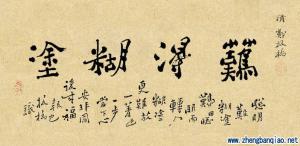 清 鄭板橋
難得糊塗
聰明
難糊塗
難由聰
明而
轉入
糊塗
更難放
一著退
一步
當下心
安非圖
後來福
報也
板橋
識
www.zhengbanqiao.net